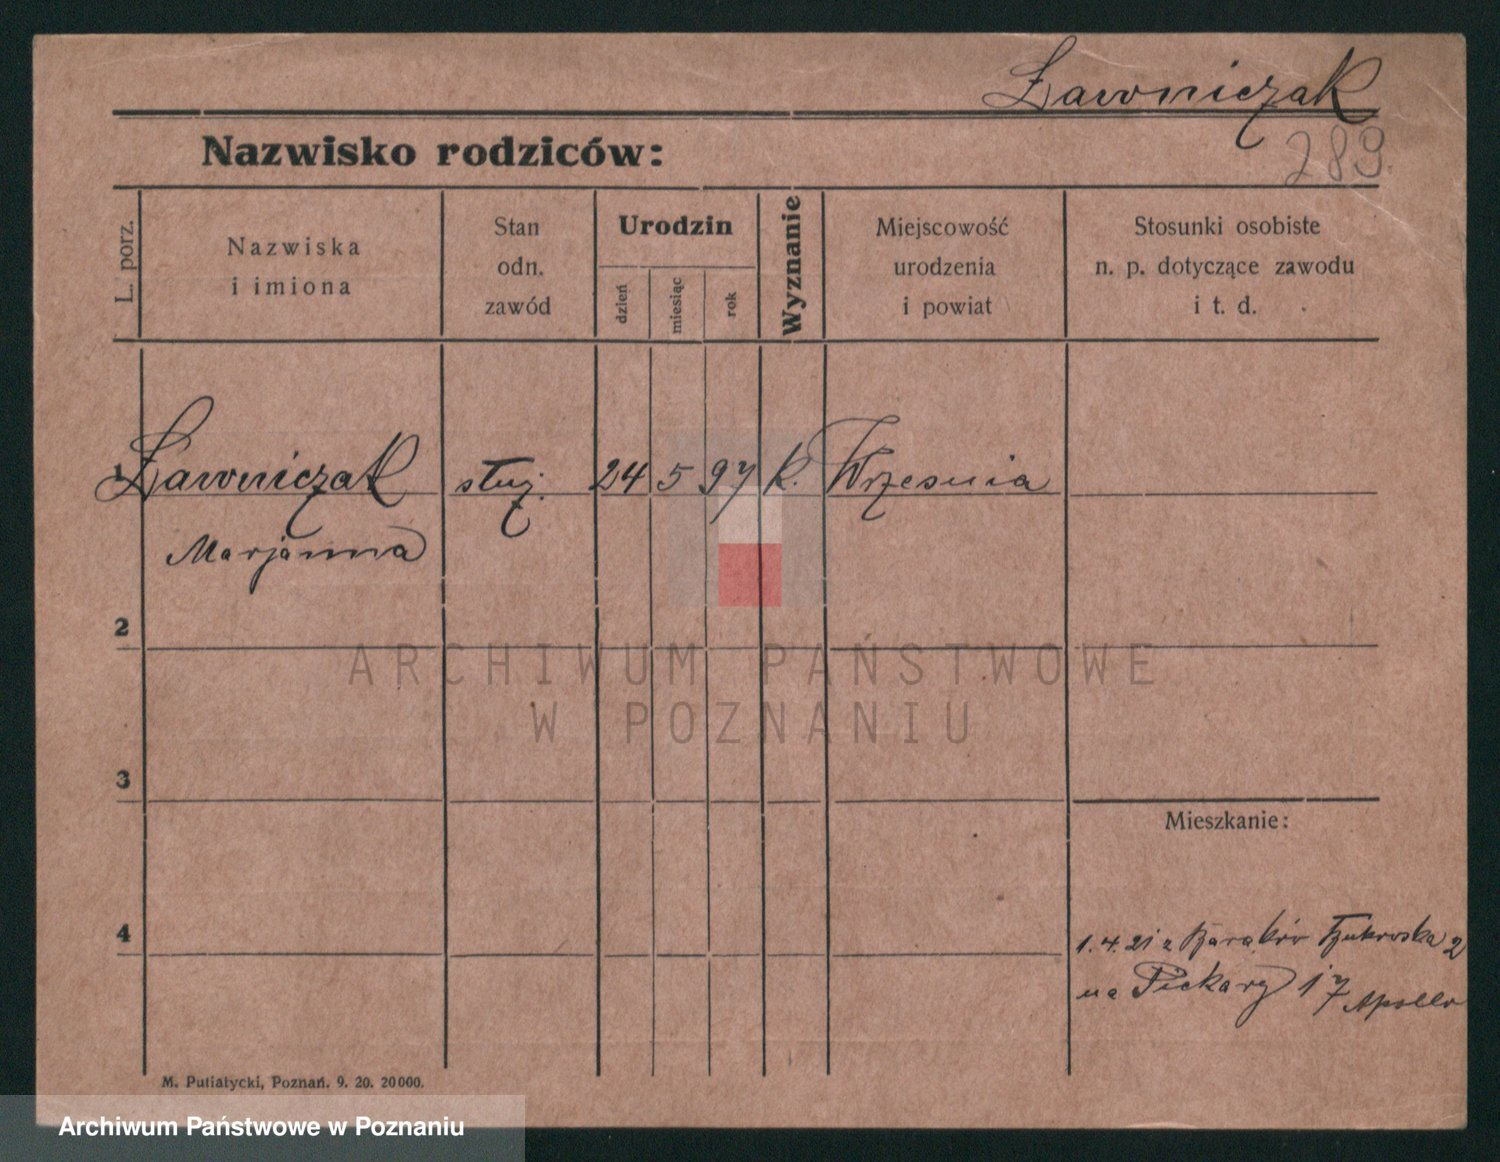 Ławniczak
289.
Nazwisko rodziców:
L. porz.
Nazwiska
i imiona
Stan
odn.
zawód
Urodzin
dzień
miesiąc
rok
Wyznanie
Miejscowość
urodzenia
i powiat
Stosunki osobiste
n. p. dotyczące zawodu
i t. d.
1 Ławniczak służ. 24 5 97 k. Września
Marjanna
2
ARCHIWUM PAŃSTWOWE
W POZNANIU
3
Mieszkanie:
4
1.4.21 z 2
na Piekary 17 Apollo
M. Putiatycki, Poznań. 9. 20. 20000.
Archiwum Państwowe w Poznaniu